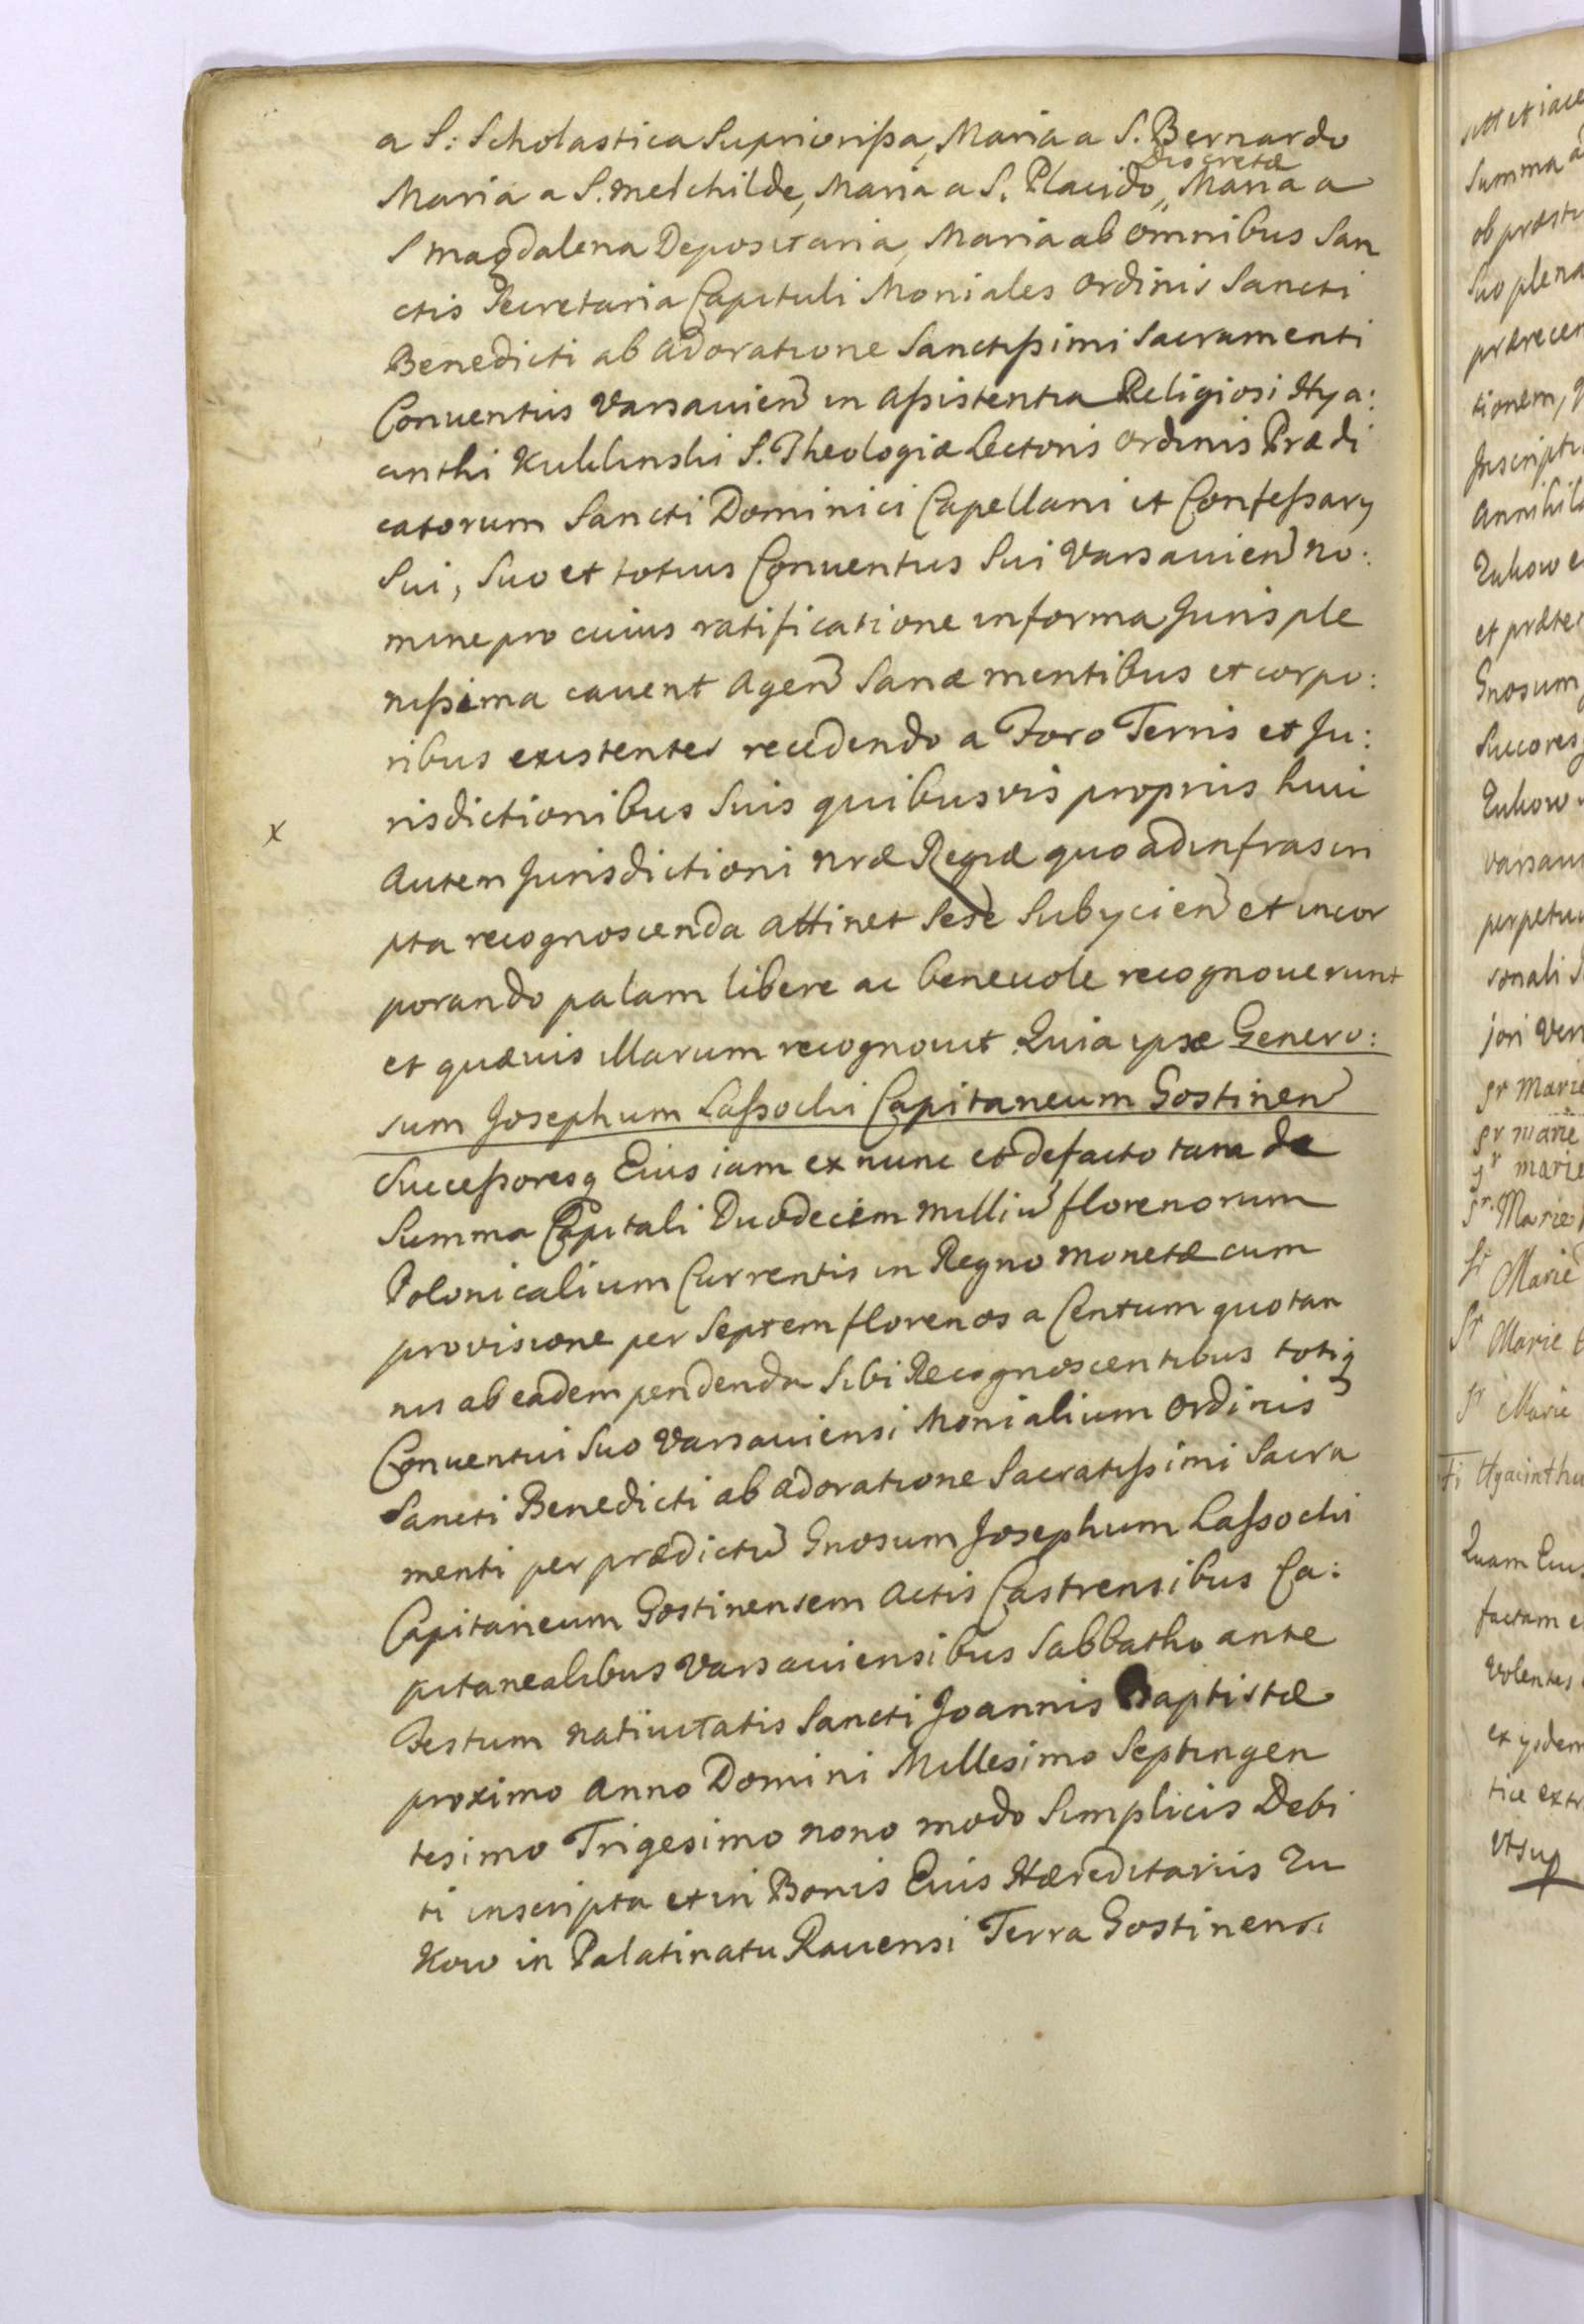 a S: Scholastica Suprioriſsa, Maria a S. Bernardo
Discretæ
Maria a S. Melchilde, Maria a S. Placido,, Maria a
S Magdalena Depositaria, Maria ab omnibus San
ctis Secretaria Capituli Moniales Ordinis Sancti
Benedicti ab Adoratione Sanctiſsimi Sacramenti
Conuentus Varsauien in Aſsistentia Religiosi Hya:
cinthi Kuklinski S. Theologiæ Lectoris Ordinis Prædi
catorum Sancti Dominici Capellani et Confeſsary
Sui, Suo et totius Conuentus Sui Varsauien no:
mine pro cuius ratificatione in forma Juris ple
niſsima cauent Agen Sanæ mentibus et corpo:
ribus existentes recedendo a Foro Terris et Ju:
risdictionibus Suis quibusvis proprijs huic
x
Autem Jurisdictioni nræ Regiæ quo ad infrascri
pta recognoscenda attinet Sese Subycien et incor
porando palam libere ac beneuole recognouerunt
et quæuis illarum recognouit Quia ipsæ Genero:
sum Josephum Laſsocki Capitaneum Gostinen
Succeſsoresq Eius iam ex nunc et de facto tam de
Summa Capitali Duodecim Milliu florenorum
Polonicalium Currentis in Regno monetæ cum
provisione per Septem florenos a Centum quotan
nis ab eadem pendenda Sibi Recognoscentibus totiq
Conuentui Suo Varsauiensi Monialium Ordinis
Sancti Benedicti ab Adoratione Sacratiſsimi Sacra
menti per prædictu Gnosum Josephum Laſsocki
Capitaneum Gostinensem Actis Castrensibus Ca:
pitanealibus Varsauiensibus Sabbatho ante
Festum natiuitatis Sancti Joannis Baptistæ
proximo Anno Domini Millesimo Septingen
tesimo Trigesimo nono modo Simplicis Debi
ti inscripta et in Bonis Eius Hæreditariis Zu
kow in Palatinatu Rauensi Terra Gostinensi